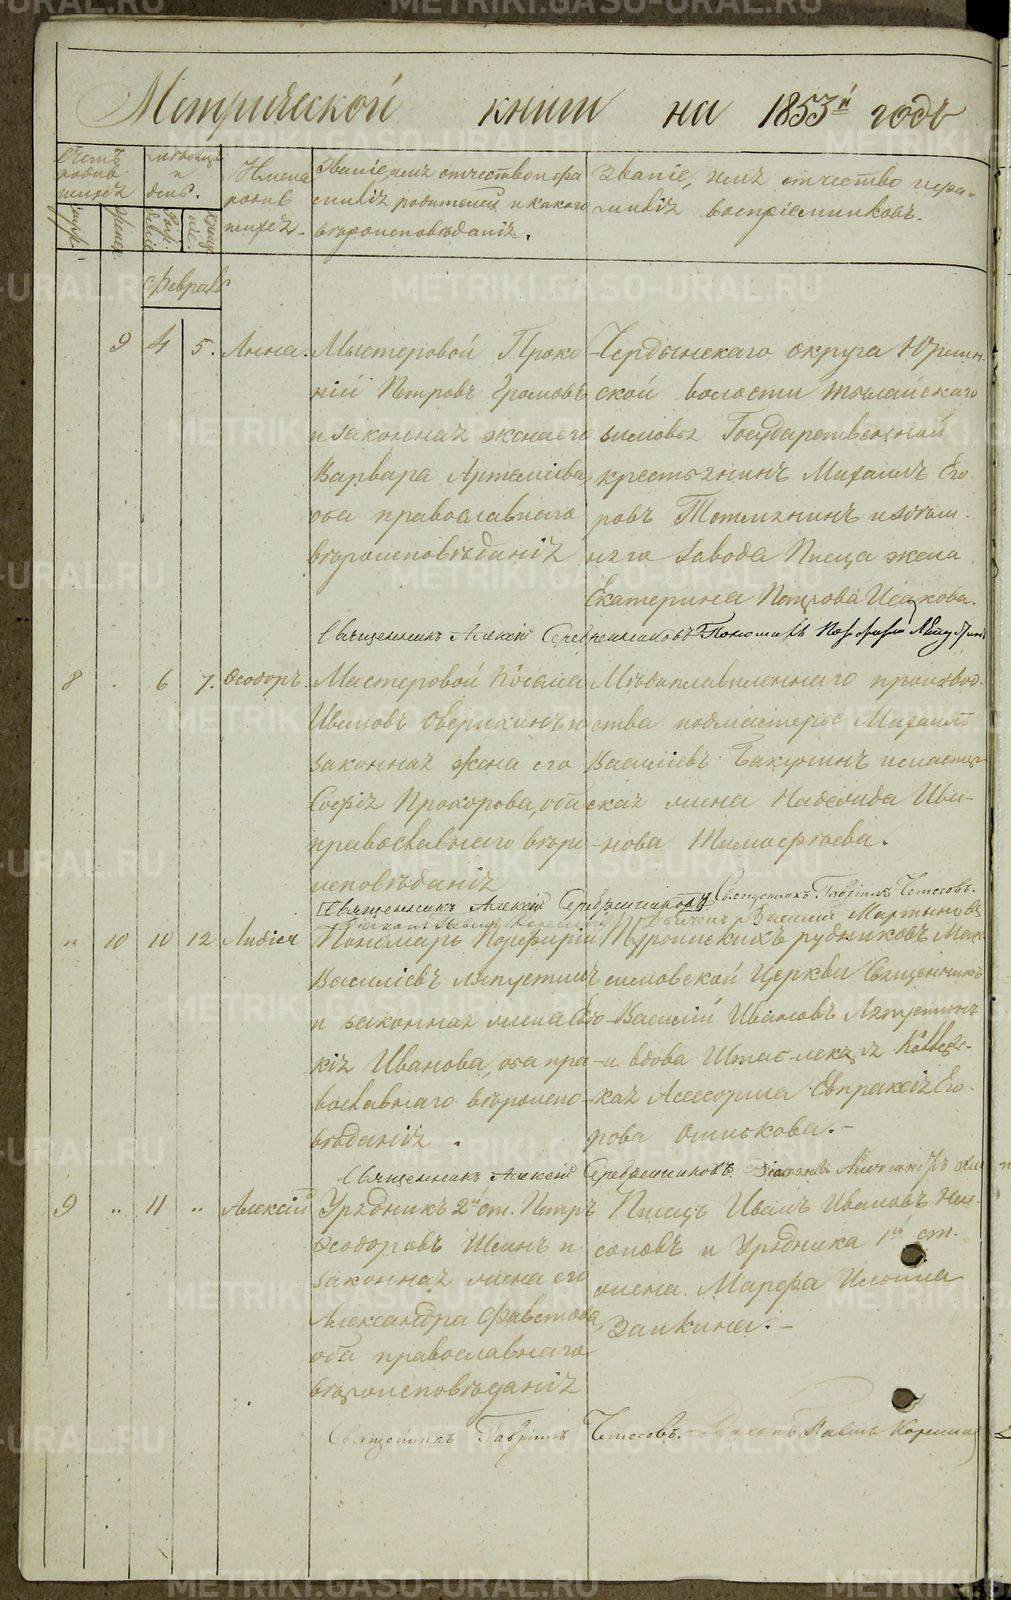 Метрической книги на 1853й годъ
Счетъ родившихся
Мужеск.
Женск.
Месяцъ и день.
Рожденія
Крещенія
Имена родившихся
Званіе, имя отчество и фамилія родителей и какого вѣроисповѣданія.
Званіе, имя отчество и фамилія воспріемниковъ.
Февраль
9 4 5. Анна.
Мастеровой Проко-
пій Петровъ Громовъ
и законная жена его
Варвара Артеміева
оба православнаго
вѣроисповѣданія
Чердынскаго округа Юрлин-
ской волости
Государственный
крестьянинъ Михаилъ Его-
ровъ Тотмянинъ и здѣш-
няго завода Писца жена
Екатерина Петрова Исакова.
Священникъ Алексій Серебренниковъ Пономарь Порфирій Ляпустинъ
8 6 7. Ѳеодоръ.
Мастеровой Косьма
Ивановъ Оверихинъ и
законная жена его
Софія Прохорова, оба
православнаго вѣро-
исповѣданія
Мѣдиплавиленнаго производ-
ства подмастерье Михаилъ
Василіевъ Бакунинъ и мастер-
ская жена Надежда Ива-
нова Тимофѣева.
Священникъ Алексій Серебренниковъ
Священникъ Гавріилъ Четесовъ.
Василій Мартыновъ
10 10 12 Лидія
Пономарь Порфирій
Василіевъ Ляпустинъ
и законная жена Ево-
кія Иванова, оба пра-
вославнаго вѣроиспо-
вѣданія.
Турьинскихъ рудниковъ Мак-
симовской Церкви Священникъ
Василій Ивановъ Ляпустинъ
и вдова Штабъ-лекаря Коллеж-
ская Асессорша Евпраксія Его-
рова Ошискова.-
Священникъ Алексій Серебренниковъ. Діаконъ Александръ
9 „ 11 „ Алексій
Урядникъ 2й ст. Петръ
Ѳеодоровъ Шеинъ и
законная жена его
Александра Фавстова
оба православнаго
вѣроисповѣданія
Писецъ Иванъ Ивановъ
и Урядника 1й ст.
жена Марфа Ильина
Заикина.-
Священникъ Гавріилъ Четесовъ.- Діаконъ Павелъ
METRIKI.GASO-URAL.RU